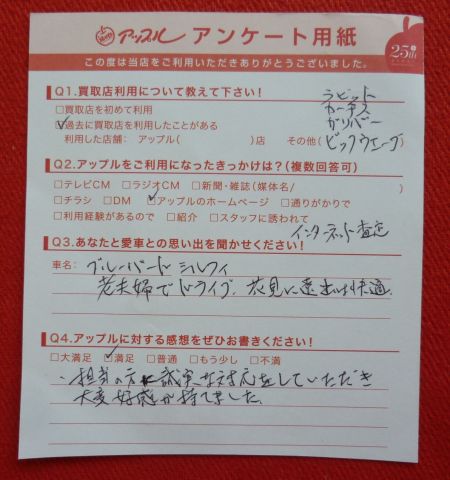 アップル アンケート用紙
25th
この度は当店をご利用いただきありがとうございました。
Q1.買取店利用について教えて下さい!
□買取店を初めて利用
☑過去に買取店を利用したことがある
利用した店舗: アップル( )店 その他(
ラビット
カーチス
ガリバー
ビックウェーブ
Q2.アップルをご利用になったきっかけは?(複数回答可)
□テレビCM □ラジオCM □新聞・雑誌(媒体名/ )
□チラシ □DM ☑アップルのホームページ □通りがかりで
□利用経験があるので □紹介 □スタッフに誘われて
インターネット査定
Q3.あなたと愛車との思い出を聞かせください!
車名: ブルーバード シルフィ
老夫婦でドライブ、花見に遠出は快適
Q4.アップルに対する感想をぜひお書きください!
□大満足 ☑満足 □普通 □もう少し □不満
・担当の方に誠実な対応をしていただき
大変好感が持てました。